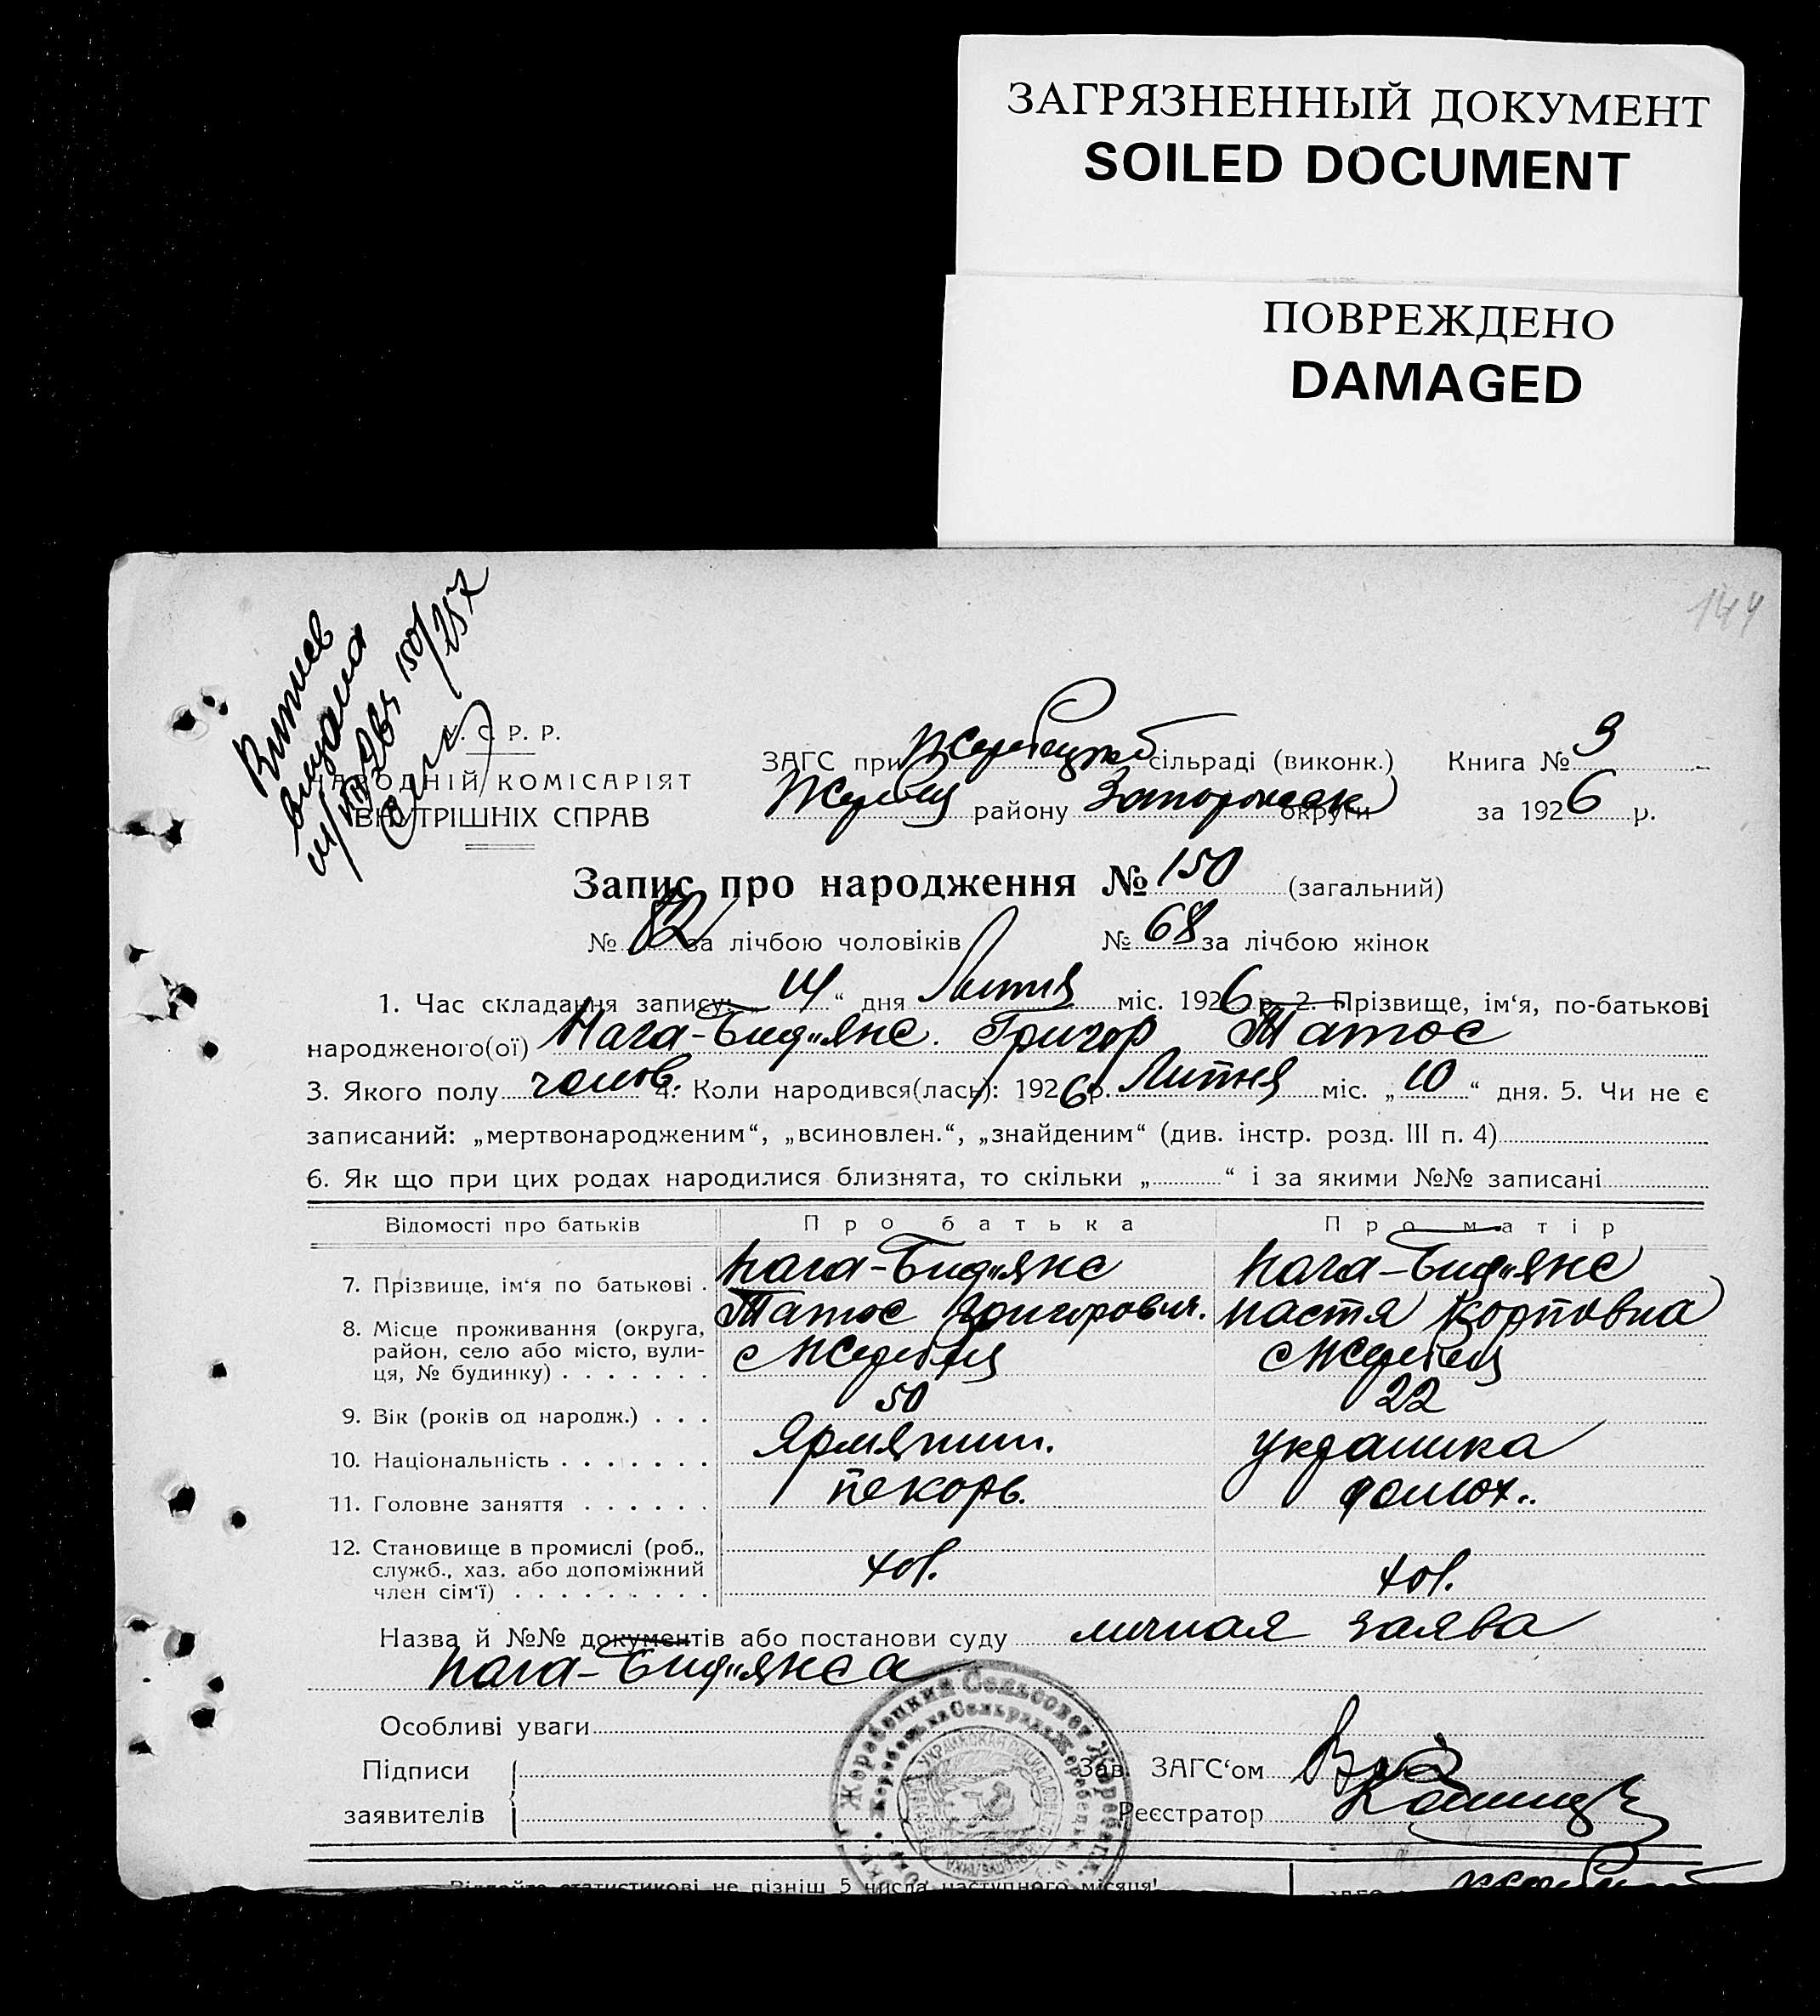 ЗАГРЯЗНЕННЫЙ ДОКУМЕНТ
SOILED DOCUMENT
ПОВРЕЖДЕНО
DAMAGED
144
Витяв
видана
150/257
С. Р. Р.
НАРОДНІЙ КОМІСАРІЯТ
ВНУТРІШНІХ СПРАВ
ЗАГС при Жеребецкой сільраді (виконк.) Книга № 3
Жеребец району Запорожск округи за 1926 р.
Запис про народження № 150 (загальний)
№ 82 за лічбою чоловіків № 68 за лічбою жінок
1. Час складання запису: „14“ дня Липня міс. 1926 р. 2. Прізвище, ім‘я, по-батькові
народженого(ої) Нага-Бид"янс. Григор Татос
3. Якого полу чолов. 4. Коли народився(лась): 1926 р. Липня міс. „10“ дня. 5. Чи не є
записаний: „мертвонародженим“, „всиновлен.“, „знайденим“ (див. інстр. розд. III п. 4)
6. Як що при цих родах народилися близнята, то скільки „ “ і за якими №№ записані
Відомості про батьків Про батька Про матір
7. Прізвище, ім‘я по батькові . Нага-Бид"янс Нага-Бид"янс
Татос Григорович. Настя Карповна
8. Місце проживання (округа, район, село або місто, вулиця, № будинку) . . . . . . . с Жеребец с Жеребец
9. Вік (років од народж.) . . . 50 22
10. Національність . . . . . . . Ярмянин. украинка
11. Головне заняття . . . . . . пекорь. домох..
12. Становище в промислі (роб., служб., хаз. або допоміжний член сім‘ї) . . . . . . . . .
Назва й №№ документів або постанови суду личная заява
Нага-Бид"янса
Особливі уваги
Підписи
заявителів
Зав. ЗАГС‘ом
Реєстратор
Жеребецкий Сельсовет
Віддайте статистикові не пізніш 5 числа наступного місяця!